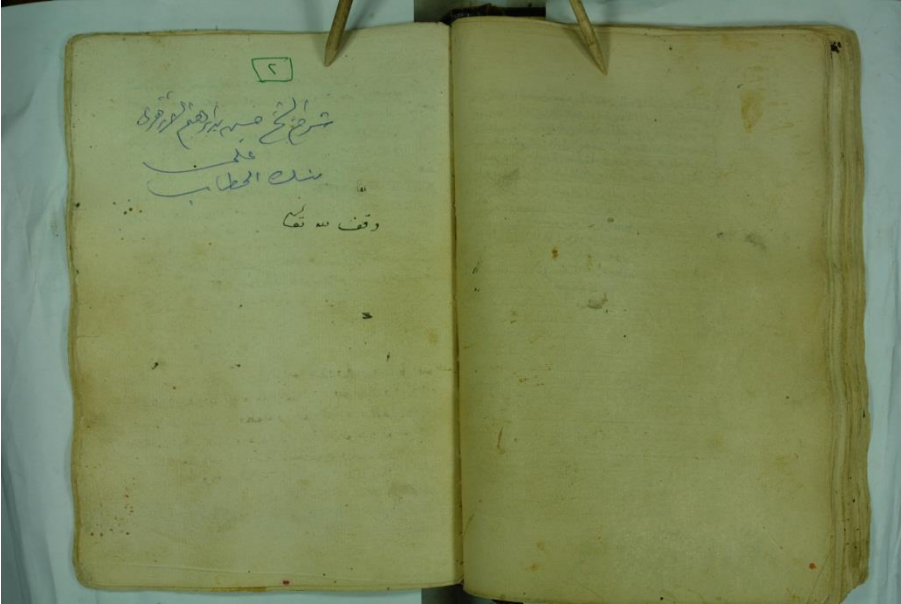 ٢
شرح الشيخ حسين بن ابراهيم
على
منسك الحطاب
وقف لله تعالى